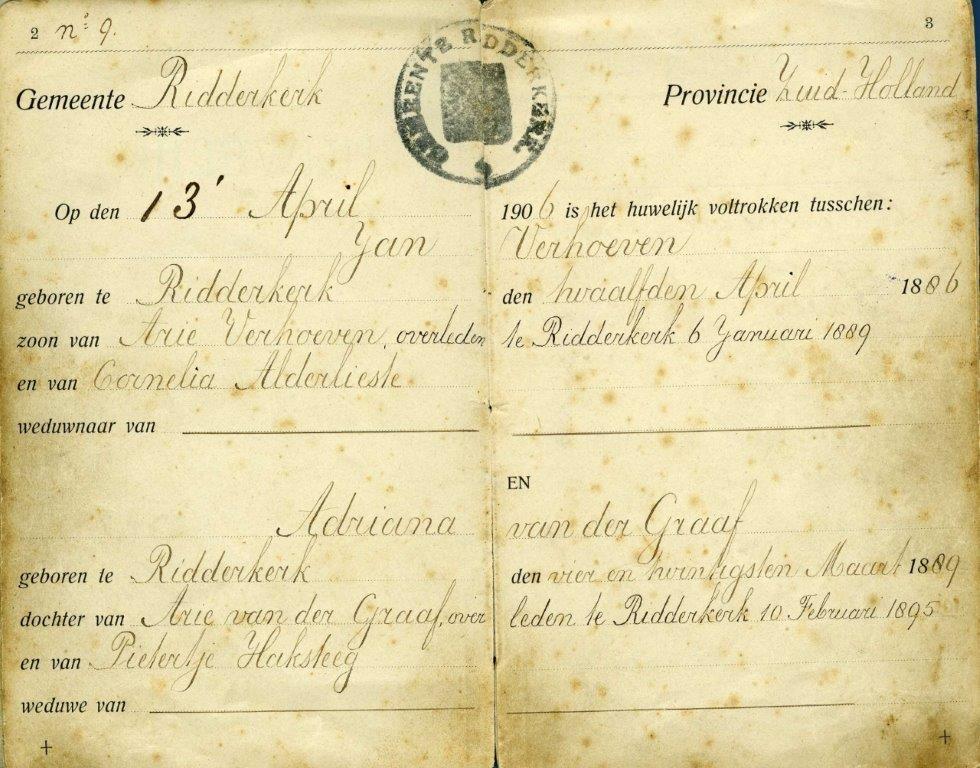 2 nº 9.
3
GEMEENTE RIDDERKERK
Gemeente Ridderkerk Provincie Zuid-Holland
Op den 13' April 1906 is het huwelijk voltrokken tusschen:
Jan Verhoeven
geboren te Ridderkerk den twaalfden April 1886
zoon van Arie Verhoeven, overleden te Ridderkerk 6 Januari 1889
en van Cornelia Alderlieste
weduwnaar van
EN
Adriana van der Graaf
geboren te Ridderkerk den vier en twintigsten Maart 1889
dochter van Arie van der Graaf, over leden te Ridderkerk 10 Februari 1895
en van Pietertje Haksteeg
weduwe van